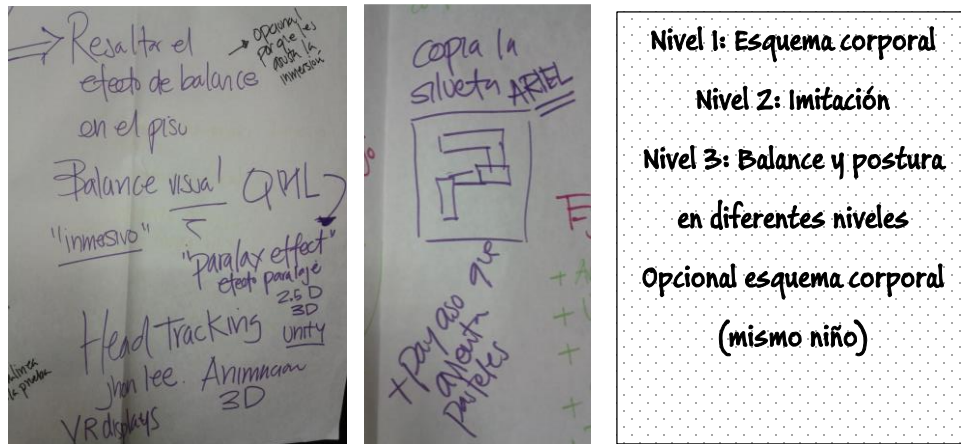 Resaltar el
efecto de balance
en el piso
opcional
porque les
asusta la
inmersión
Balance visual QML
"inmersivo"
"paralax effect"
efecto paralaje
2.5 D
3D
unity
Head Tracking
jhon lee. Animacion
3D
VR displays
la prueba
copia la
silueta ARIEL
+ payaso que
avienta
pasteles
Nivel 1: Esquema corporal
Nivel 2: Imitación
Nivel 3: Balance y postura
en diferentes niveles
Opcional esquema corporal
(mismo niño)